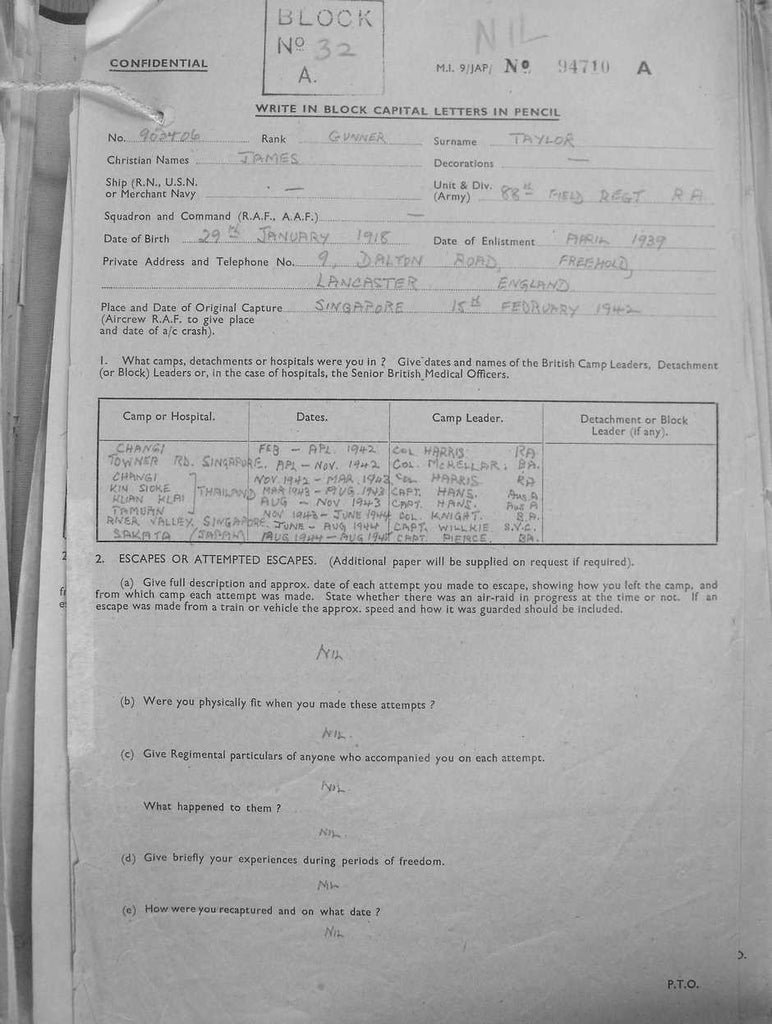 BLOCK
Nº 32
A.
NIL
CONFIDENTIAL
M.I. 9/JAP/ Nº 94710 A
WRITE IN BLOCK CAPITAL LETTERS IN PENCIL
No. 902406 Rank GUNNER Surname TAYLOR
Christian Names JAMES Decorations —
Ship (R.N., U.S.N. or Merchant Navy —
Unit & Div. (Army) 88th FIELD REGT RA
Squadron and Command (R.A.F., A.A.F.) —
Date of Birth 29th JANUARY 1918 Date of Enlistment APRIL 1939
Private Address and Telephone No. 9, DALTON ROAD, FREEHOLD,
LANCASTER ENGLAND
Place and Date of Original Capture SINGAPORE 15th FEBRUARY 1942
(Aircrew R.A.F. to give place
and date of a/c crash).
1. What camps, detachments or hospitals were you in ? Give dates and names of the British Camp Leaders, Detachment
(or Block) Leaders or, in the case of hospitals, the Senior British Medical Officers.
Camp or Hospital. Dates. Camp Leader. Detachment or Block Leader (if any).
CHANGI FEB – APL. 1942 COL HARRIS RA
TOWNER RD. SINGAPORE. APL – NOV. 1942 COL. McKELLAR. RA.
CHANGI NOV. 1942 – MAR. 1943 COL HARRIS RA
KIN SIOKE THAILAND MAR 1943 – AUG. 1943 CAPT. HANS. Aus A
KLIAN KLAI AUG – NOV 1943 CAPT. HANS. Aus A
TAMUAN NOV 1943 – JUNE 1944 COL. KNIGHT. R.A.
RIVER VALLEY, SINGAPORE. JUNE – AUG 1944 CAPT. WILLKIE S.V.C.
SAKATA (JAPAN) AUG 1944 – AUG 1945 CAPT. PIERCE. RA.
2. ESCAPES OR ATTEMPTED ESCAPES. (Additional paper will be supplied on request if required).
(a) Give full description and approx. date of each attempt you made to escape, showing how you left the camp, and
from which camp each attempt was made. State whether there was an air-raid in progress at the time or not. If an
escape was made from a train or vehicle the approx. speed and how it was guarded should be included.
NIL
(b) Were you physically fit when you made these attempts ?
NIL.
(c) Give Regimental particulars of anyone who accompanied you on each attempt.
NIL.
What happened to them ?
NIL.
(d) Give briefly your experiences during periods of freedom.
NIL
(e) How were you recaptured and on what date ?
NIL
P.T.O.